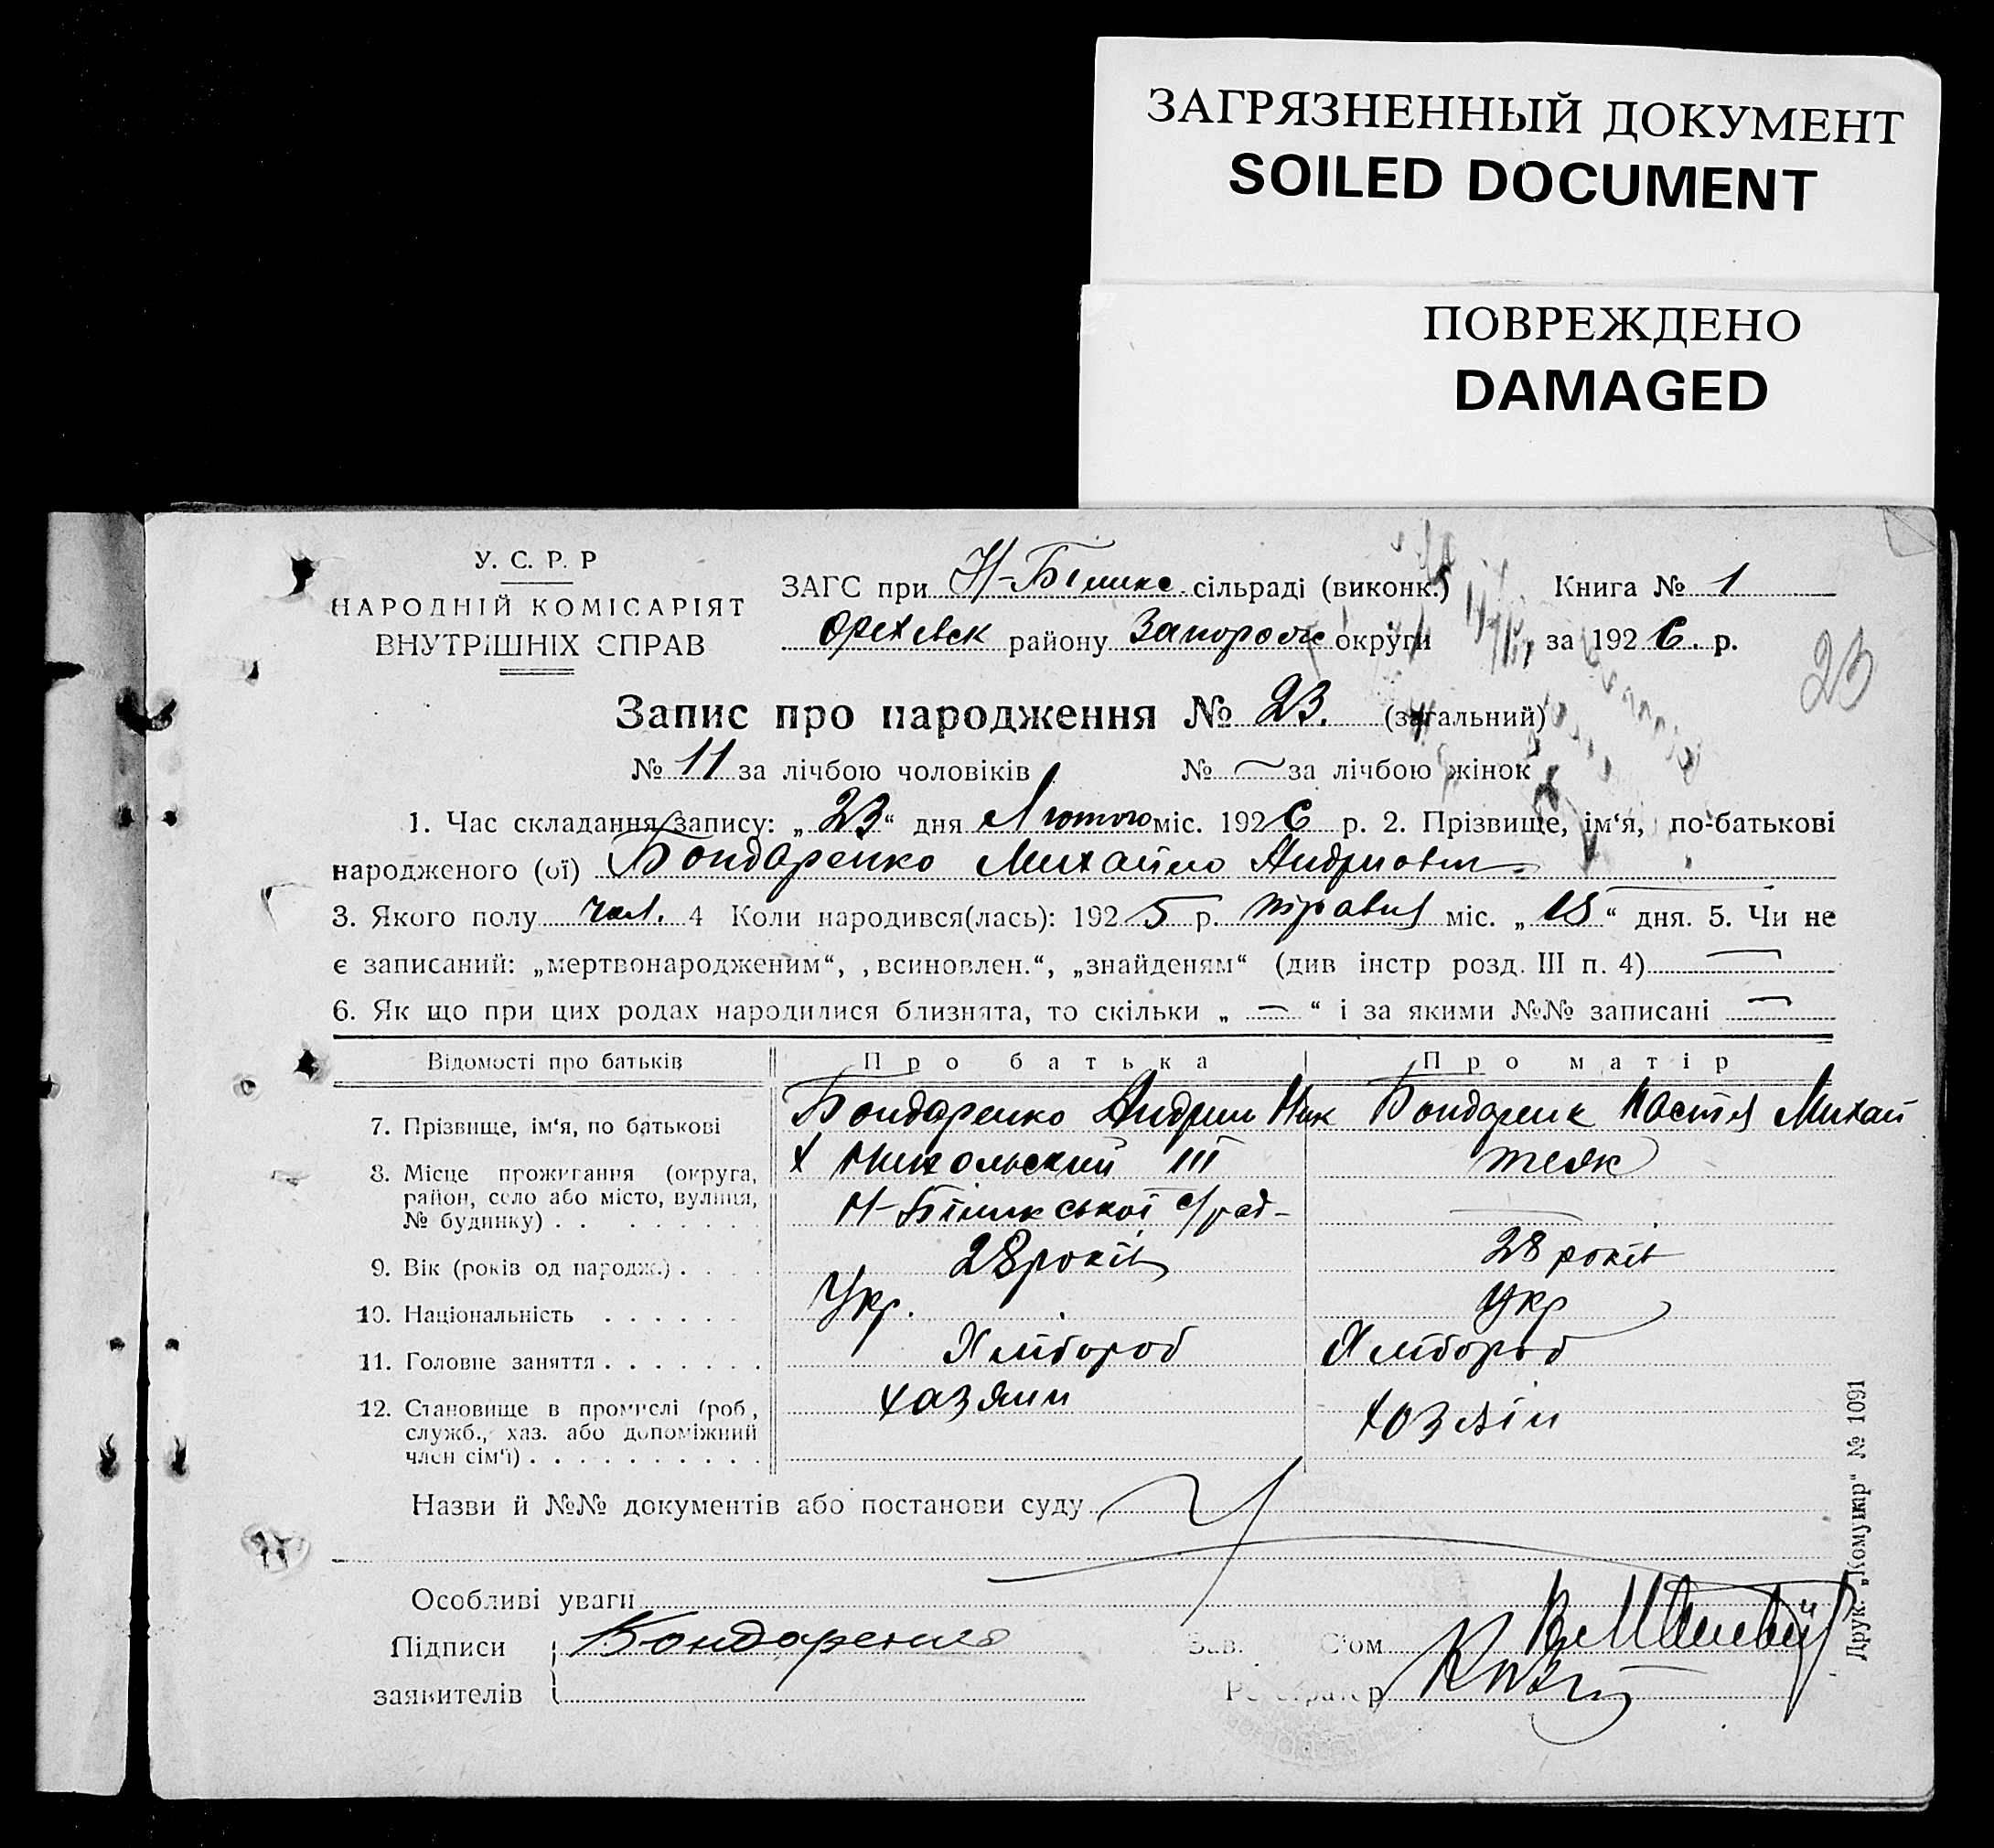 ЗАГРЯЗНЕННЫЙ ДОКУМЕНТ
SOILED DOCUMENT
ПОВРЕЖДЕНО
DAMAGED
У. С. Р. Р
НАРОДНІЙ КОМІСАРІЯТ
ВНУТРІШНІХ СПРАВ
ЗАГС при сільраді (виконк.) Книга № 1
Орехівск району Запорож округи за 1926. р.
23
Запис про народження № 23. (загальний)
№ 11 за лічбою чоловіків № — за лічбою жінок
1. Час складання запису: „23“ дня Лютого міс. 1926 р. 2. Прізвище, ім‘я, по-батькові
народженого (ої) Бондаренко Михайло Андриович
3. Якого полу чол. 4 Коли народився(лась): 1925 р. травня міс. „18“ дня. 5. Чи не
є записаний: „мертвонародженим“, „всиновлен.“, „знайденям“ (див інстр розд. III п. 4) —
6. Як що при цих родах народилися близнята, то скільки „ — “ і за якими №№ записані —
Відомості про батьків Про батька Про матір
7. Прізвище, ім‘я, по батькові Бондаренко Андрий Ник Бондаренк Настя Михай
8. Місце проживання (округа, район, село або місто, вулиця, № будинку) . . . . . . . х Никольский III теж
Н- ської с/рад- —
9. Вік (років од народж.) . . . . 28 років 28 років
10. Національність . . . . . . Укр. Укр
11. Головне заняття . . . . . . . Хлібороб Хлібороб
12. Становище в промислі (роб., служб., хаз. або допоміжний член сім‘ї) . . . . . . . . . . хазяин хозяін
Назви й №№ документів або постанови суду
Особливі уваги
Підписи заявителів Бондаренко
Зав. С‘ом
Реєстратор
Друк. „Комунар“ № 1091